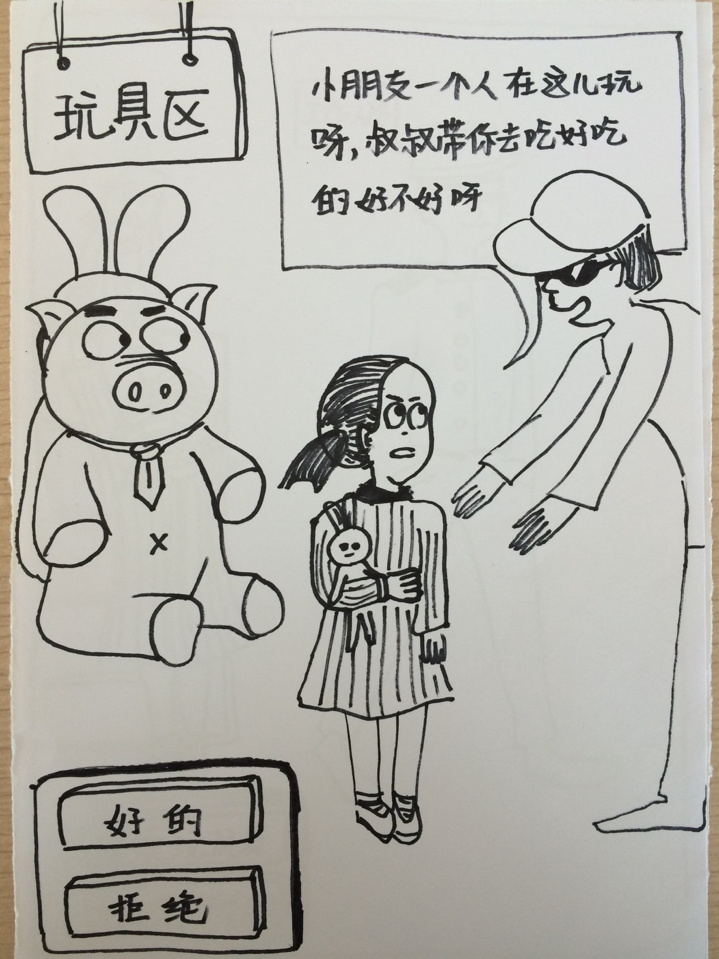 玩具区
小朋友一个人在这儿玩
呀,叔叔带你去吃好吃
的好不好呀
好的
拒绝